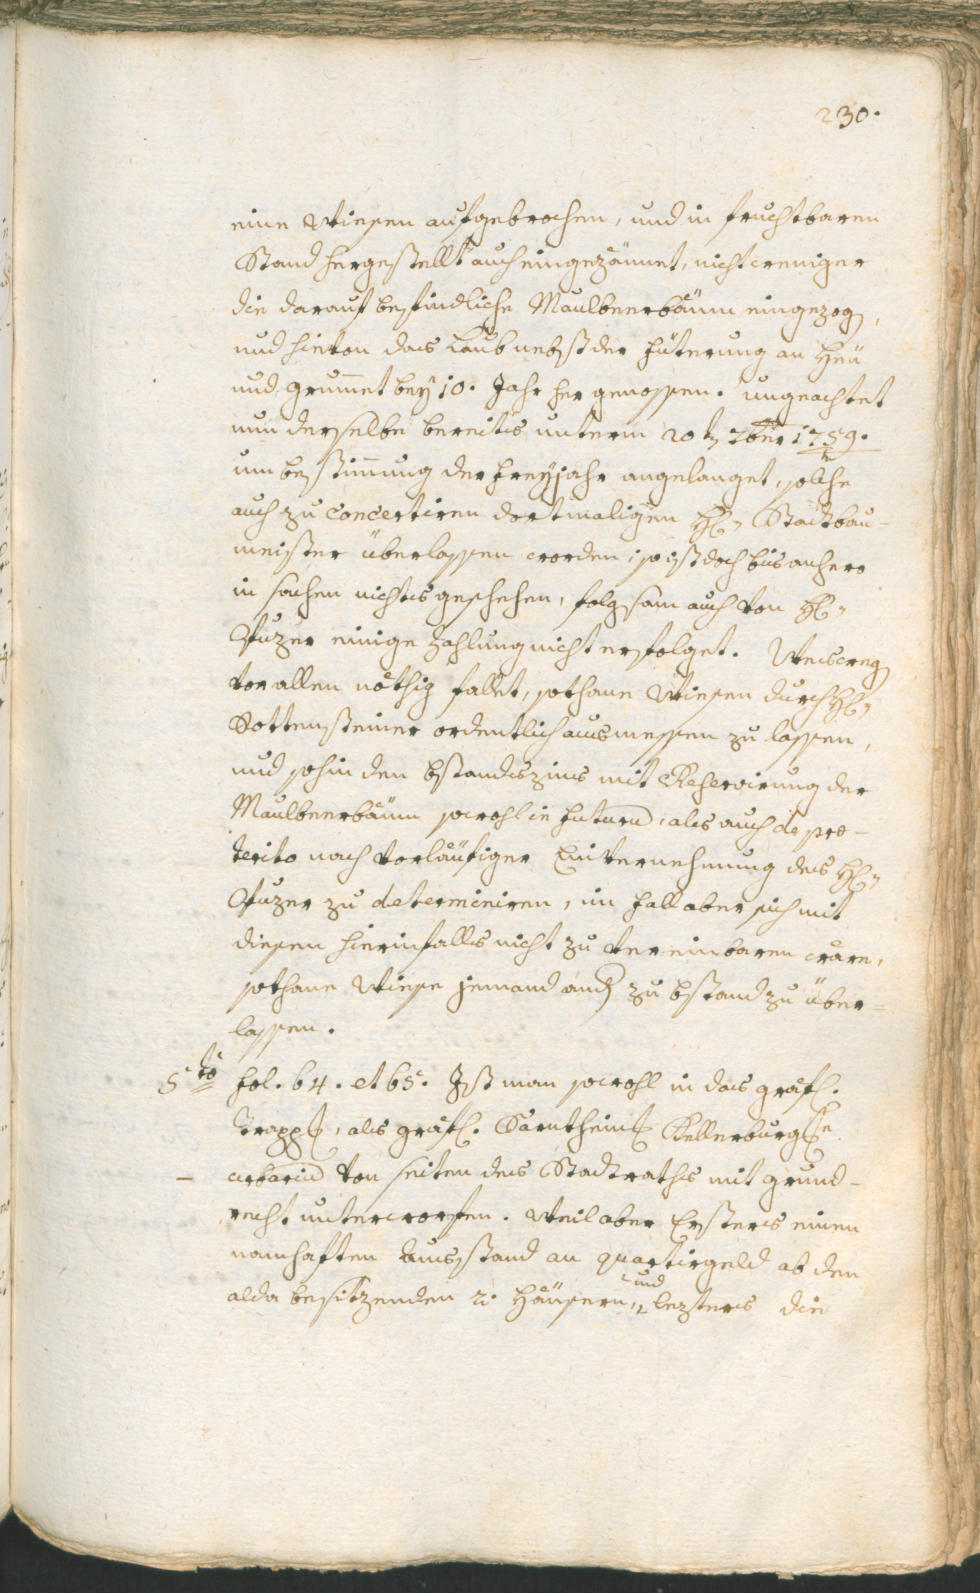 230.
eine Wiesen aufgebrochen, und in fruchtbaren
Stand hergestellt auch eingezäunet, nicht weniger
die darauf befindliche Maulbeerbäum eingezog,
und hievon das Laub nebst der Füterung an Heu
und Grumet bey 10. Jahr her genossen. ungeachtet
nun derselbe bereits unterm 20t 7ber 1759.
um bestimmung der Freyjahr angelanget, solche
auch zu concertiren dortmaligen H: Stadtbau-
meister überlassen worden; so ist doch bis anhero
in sachen nichts geschehen, folgsam auch von H:
einige Zahlung nicht erfolget. Weswegen
vor allen nöthig fallet, sothane Wiesen durch H:
Rottensteiner ordentlich ausmessen zu lassen,
und sohin den bstandszins mit Reservirung der
Maulbeerbäum sowohl in futuru, als auch de pre-
terito nach vorläufiger Einvernehmung des H:
zu determiniren, im fall aber sich mit
diesen hierinfalls nicht zu vereinbaren wäre,
sothane Wiese jemand and zu bstand zu über-
lassen.
5to fol. 64. et 65. Ist man sowohl in das gräfl.
Trapp, als gräfl. Sarnthein Kellerburg
- urbariu von seiten des Stadtraths mit grund-
recht unterworfen. Weil aber Ersters einen
namhaften Ausstand an quartirgeld ab den
alda besitzenden 2. Häusern, und lezters die